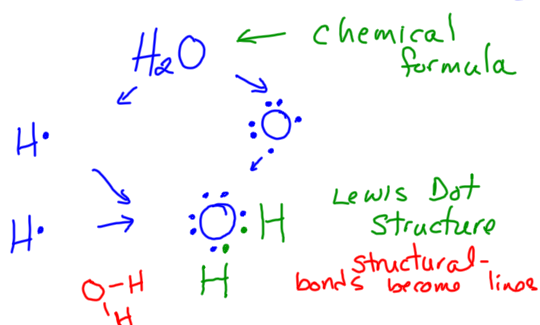 H₂O ← chemical
formula
H• O
H• O H Lewis Dot
Structure
H structural-
bonds become lines
O-H
H